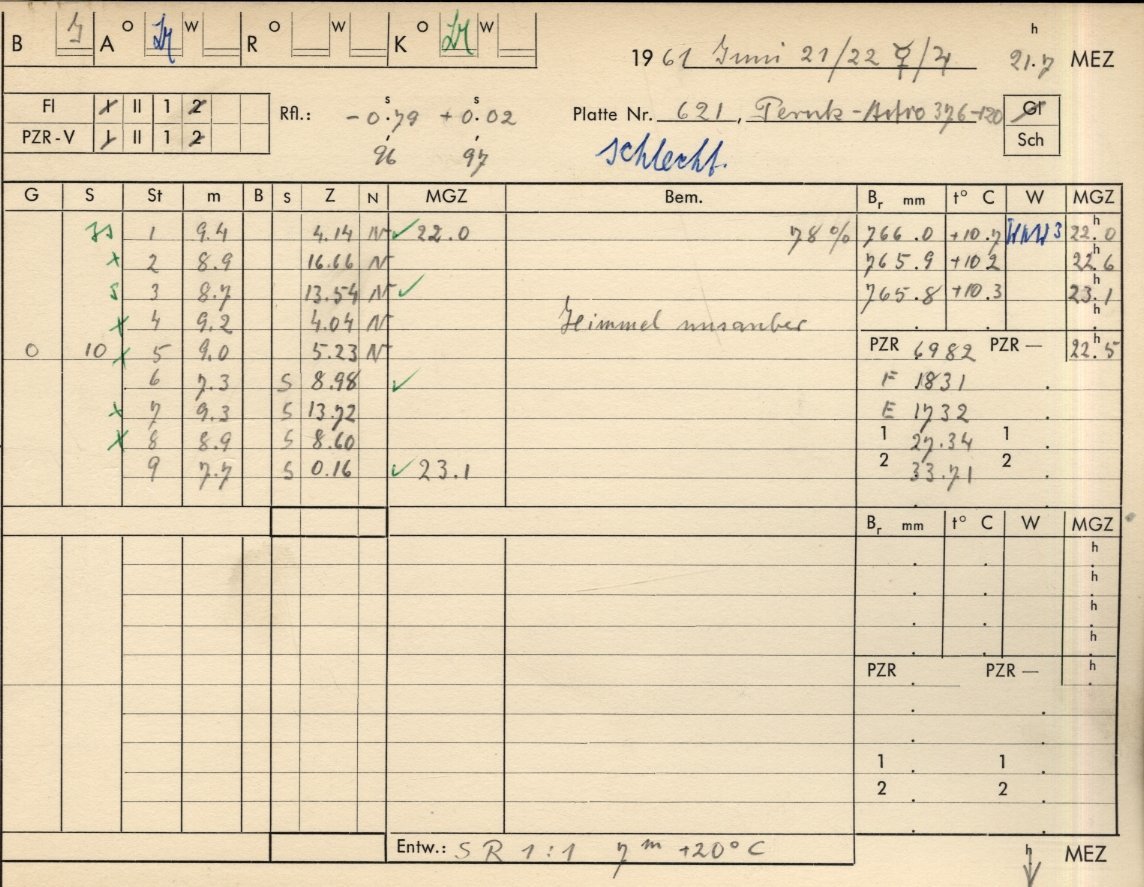 B J A O W R O W K O W
1961 Juni 21/22 ☿/♃ 21.7 h MEZ
Fl I II 1 2
PZR-V I II 1 2
Rfl.: -0.79 s +0.02 s
96 97
Platte Nr. 621, -Astro 376-120
Gl
Sch
schlecht.
G S St m B S Z N MGZ Bem. Br mm t° C W MGZ
1 9.4 4.14 N ✓ 22.0 78% 766.0 +10.7 WNW 3 22.0 h
x 2 8.9 16.66 N 765.9 +10.2 22.6 h
s 3 8.7 13.54 N ✓ 765.8 +10.3 23.1 h
x 4 9.2 4.04 N Himmel unsauber . . h .
0 10 x 5 9.0 5.23 N PZR 6982 PZR — 22.5 h
6 7.3 S 8.98 ✓ F 1831 .
x 7 9.3 S 13.72 E 1732 .
x 8 8.9 S 8.60 1 27.34 1 .
9 7.7 S 0.16 ✓ 23.1 2 33.71 2 .
Br mm t° C W MGZ
h
h
h
h
PZR PZR — h
1 1
2 2
Entw.: S R 1:1 7 m +20° C
h MEZ